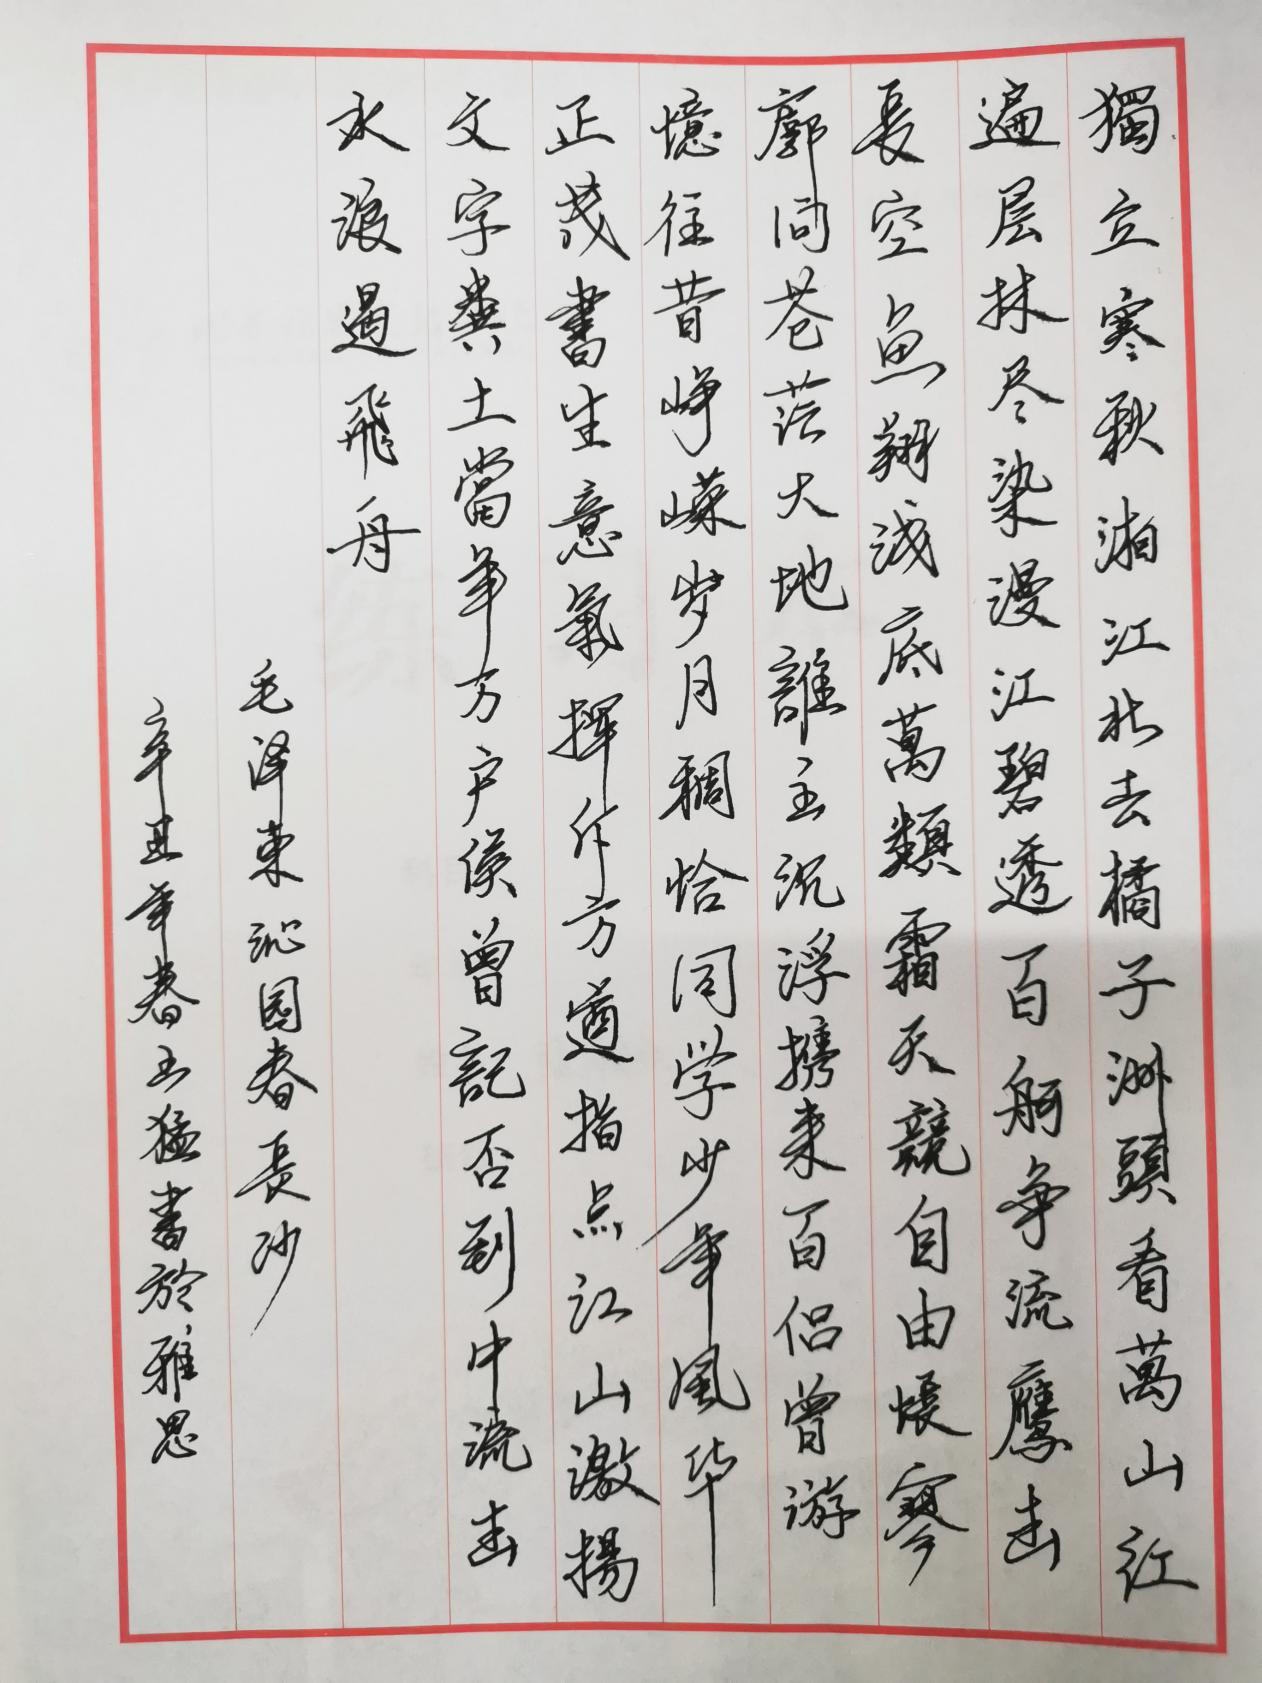 獨立寒秋湘江北去橘子洲頭看萬山红
遍层林尽染漫江碧透百舸争流鷹击
長空魚翔浅底萬類霜天競自由悵寥
廓问苍茫大地誰主沉浮携来百侣曾游
憶往昔峥嵘岁月稠恰同学少年風华
正茂書生意氣挥斥方遒指点江山激揚
文字糞土當年万户侯曾記否到中流击
水浪遏飛舟
毛泽東沁园春長沙
辛丑年春玉猛書於雅思